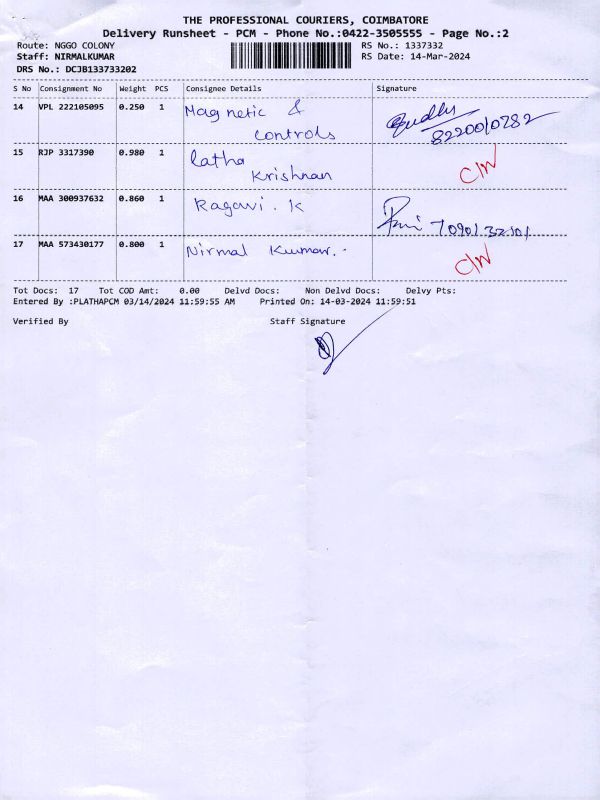 THE PROFESSIONAL COURIERS, COIMBATORE
Delivery Runsheet - PCM - Phone No.:0422-3505555 - Page No.:2
Route: NGGO COLONY RS No.: 1337332
Staff: NIRMALKUMAR RS Date: 14-Mar-2024
DRS No.: DCJB133733202
S No Consignment No Weight PCS Consignee Details Signature
14 VPL 222105095 0.250 1 Magnetic &
controls
8220010782
15 RJP 3317390 0.980 1 latha
Krishnan
C/W
16 MAA 300937632 0.860 1 Ragavi . K
17 MAA 573430177 0.800 1 Nirmal Kuumar.
C/W
Tot Docs: 17 Tot COD Amt: 0.00 Delvd Docs: Non Delvd Docs: Delvy Pts:
Entered By :PLATHAPCM 03/14/2024 11:59:55 AM Printed On: 14-03-2024 11:59:51
Verified By Staff Signature